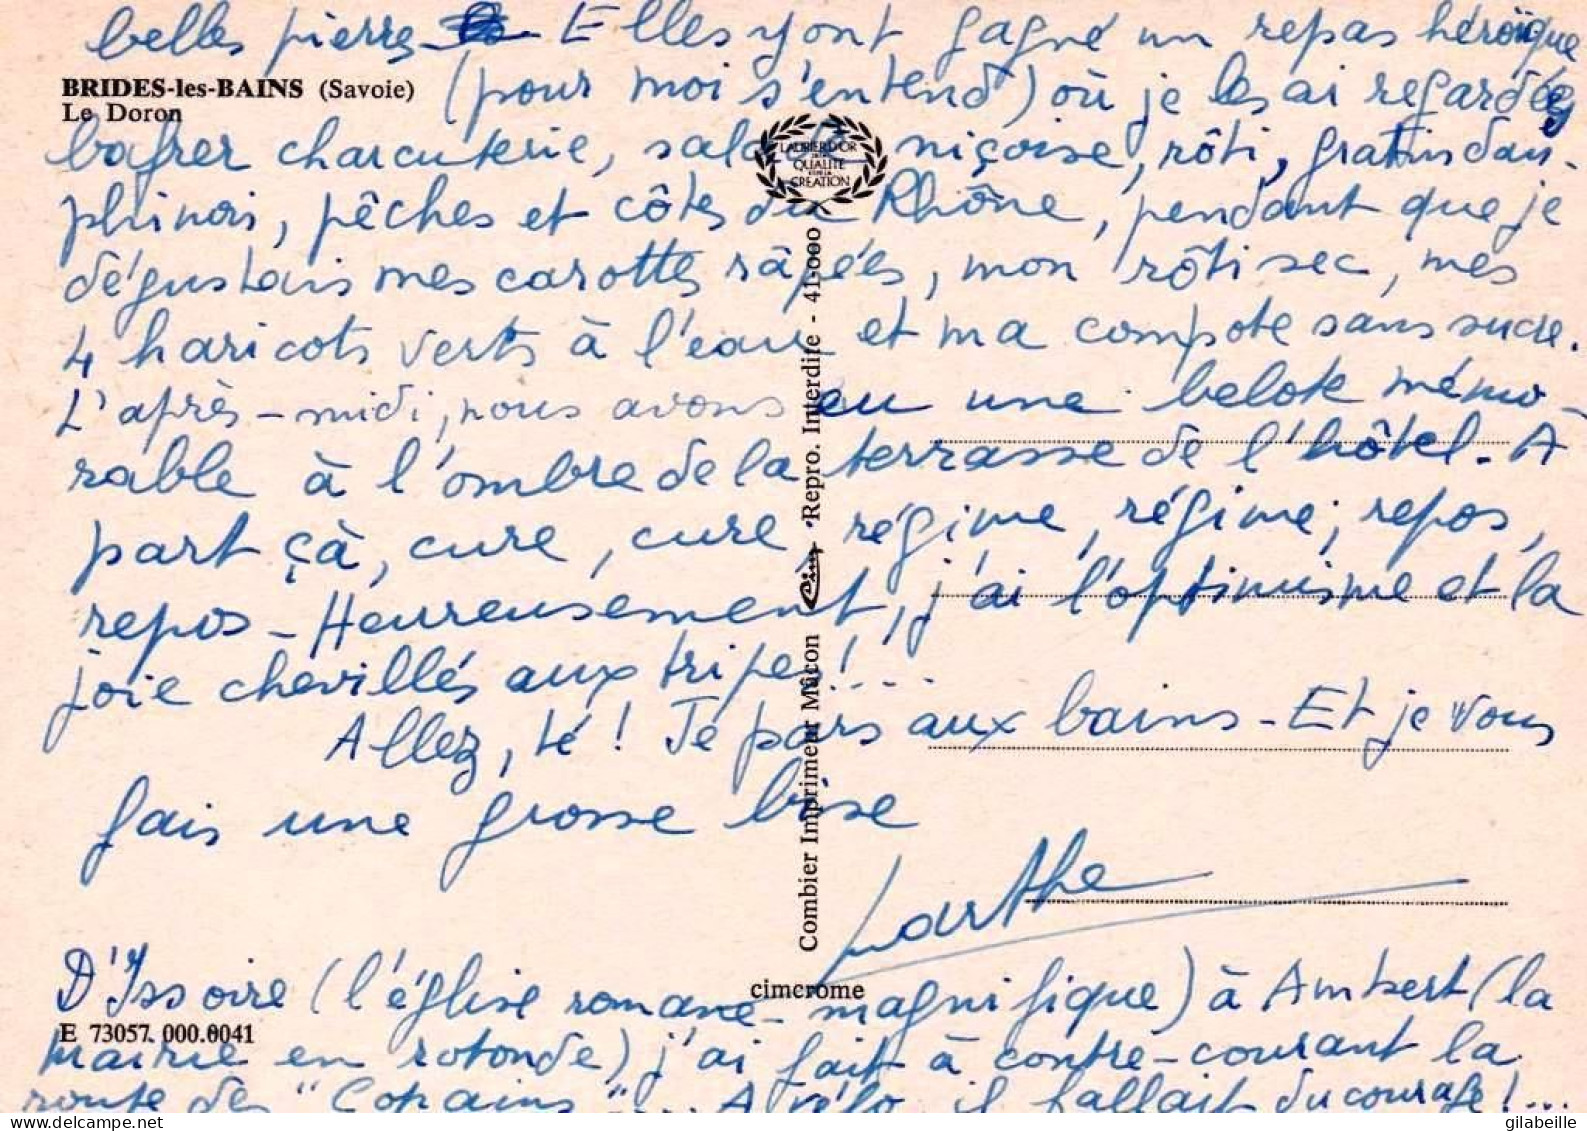 belles pierres Elles y ont gagné un repas héroïque
BRIDES-les-BAINS (Savoie)
(pour moi s'entend) où je les ai regardées
Le Doron
bafrer charcuterie, salade niçoise, rôti, gratins dau-
LAURIER D'OR
DE LA
QUALITE
ET DE LA
CREATION
phinois, pêches et côtes du Rhône, pendant que je
dégustais mes carottes râpées, mon rôti sec, mes
4 haricots verts à l'eau et ma compote sans sucre.
L'après-midi, nous avons eu une belote mémo-
rable à l'ombre de la terrasse de l'hôtel. A
part çà, cure, cure, régime, régime, repos,
repos - Heureusement, j'ai l'optimisme et la
joie chevillés aux tripes!....
Allez, té! Je pars aux bains - Et je vous
fais une grosse bise
Combier Imprimeur Mâcon Cim • Repro. Interdite - 411-000
Marthe
D'Issoire (l'église romane magnifique) à Ambert (la
cimcrome
E 73057. 000.0041
mairie en rotonde) j'ai fait à contre-courant la
route des "Copains".... A vélo, il fallait du courage!...
gilabeille